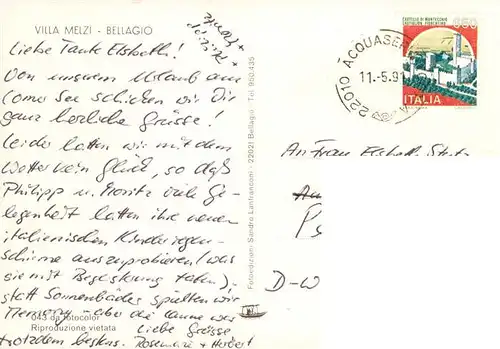 VILLA MELZI - BELLAGIO
Liebe Tante Elsbeth!
Von unserem Urlaub am
Comer See schicken wir Dir
ganz herzliche Grüsse!
Leider hatten wir mit dem
Wetter kein Glück, so daß
Philipp u. Moritz viele Ge-
legenheit hatten ihre neuen
italienischen Kinderregen-
schirme auszuprobieren (was
sie mit Begeisterung taten)-
statt Sonnenbäder spielten wir
Memory - aber die Laune war
trotzdem bestens.
Liebe Grüsse
Rosemarie + Herbert
043 da fotocolor
Riproduzione vietata
Fotoedizioni Sandro Lanfranconi - 22021 Bellagio - Tel. 950.435
CASTELLO DI MONTECCHIO
CASTIGLION FIORENTINO
650
ITALIA
22010 ACQUASE
11.-5.9
An Frau
D-W